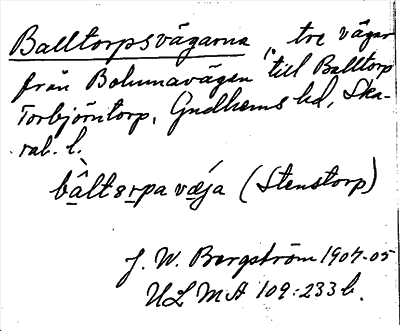 Balltorpsvägarna ", tre vägar
från Bolumavägen "till Balltorp
Torbjörntorp, Gudhems hd, Ska-
rab. l.
bàltsrpa væ̀ja (Stenstorp)
J. W. Bergström 1904-05
ULMA 109:233 b.